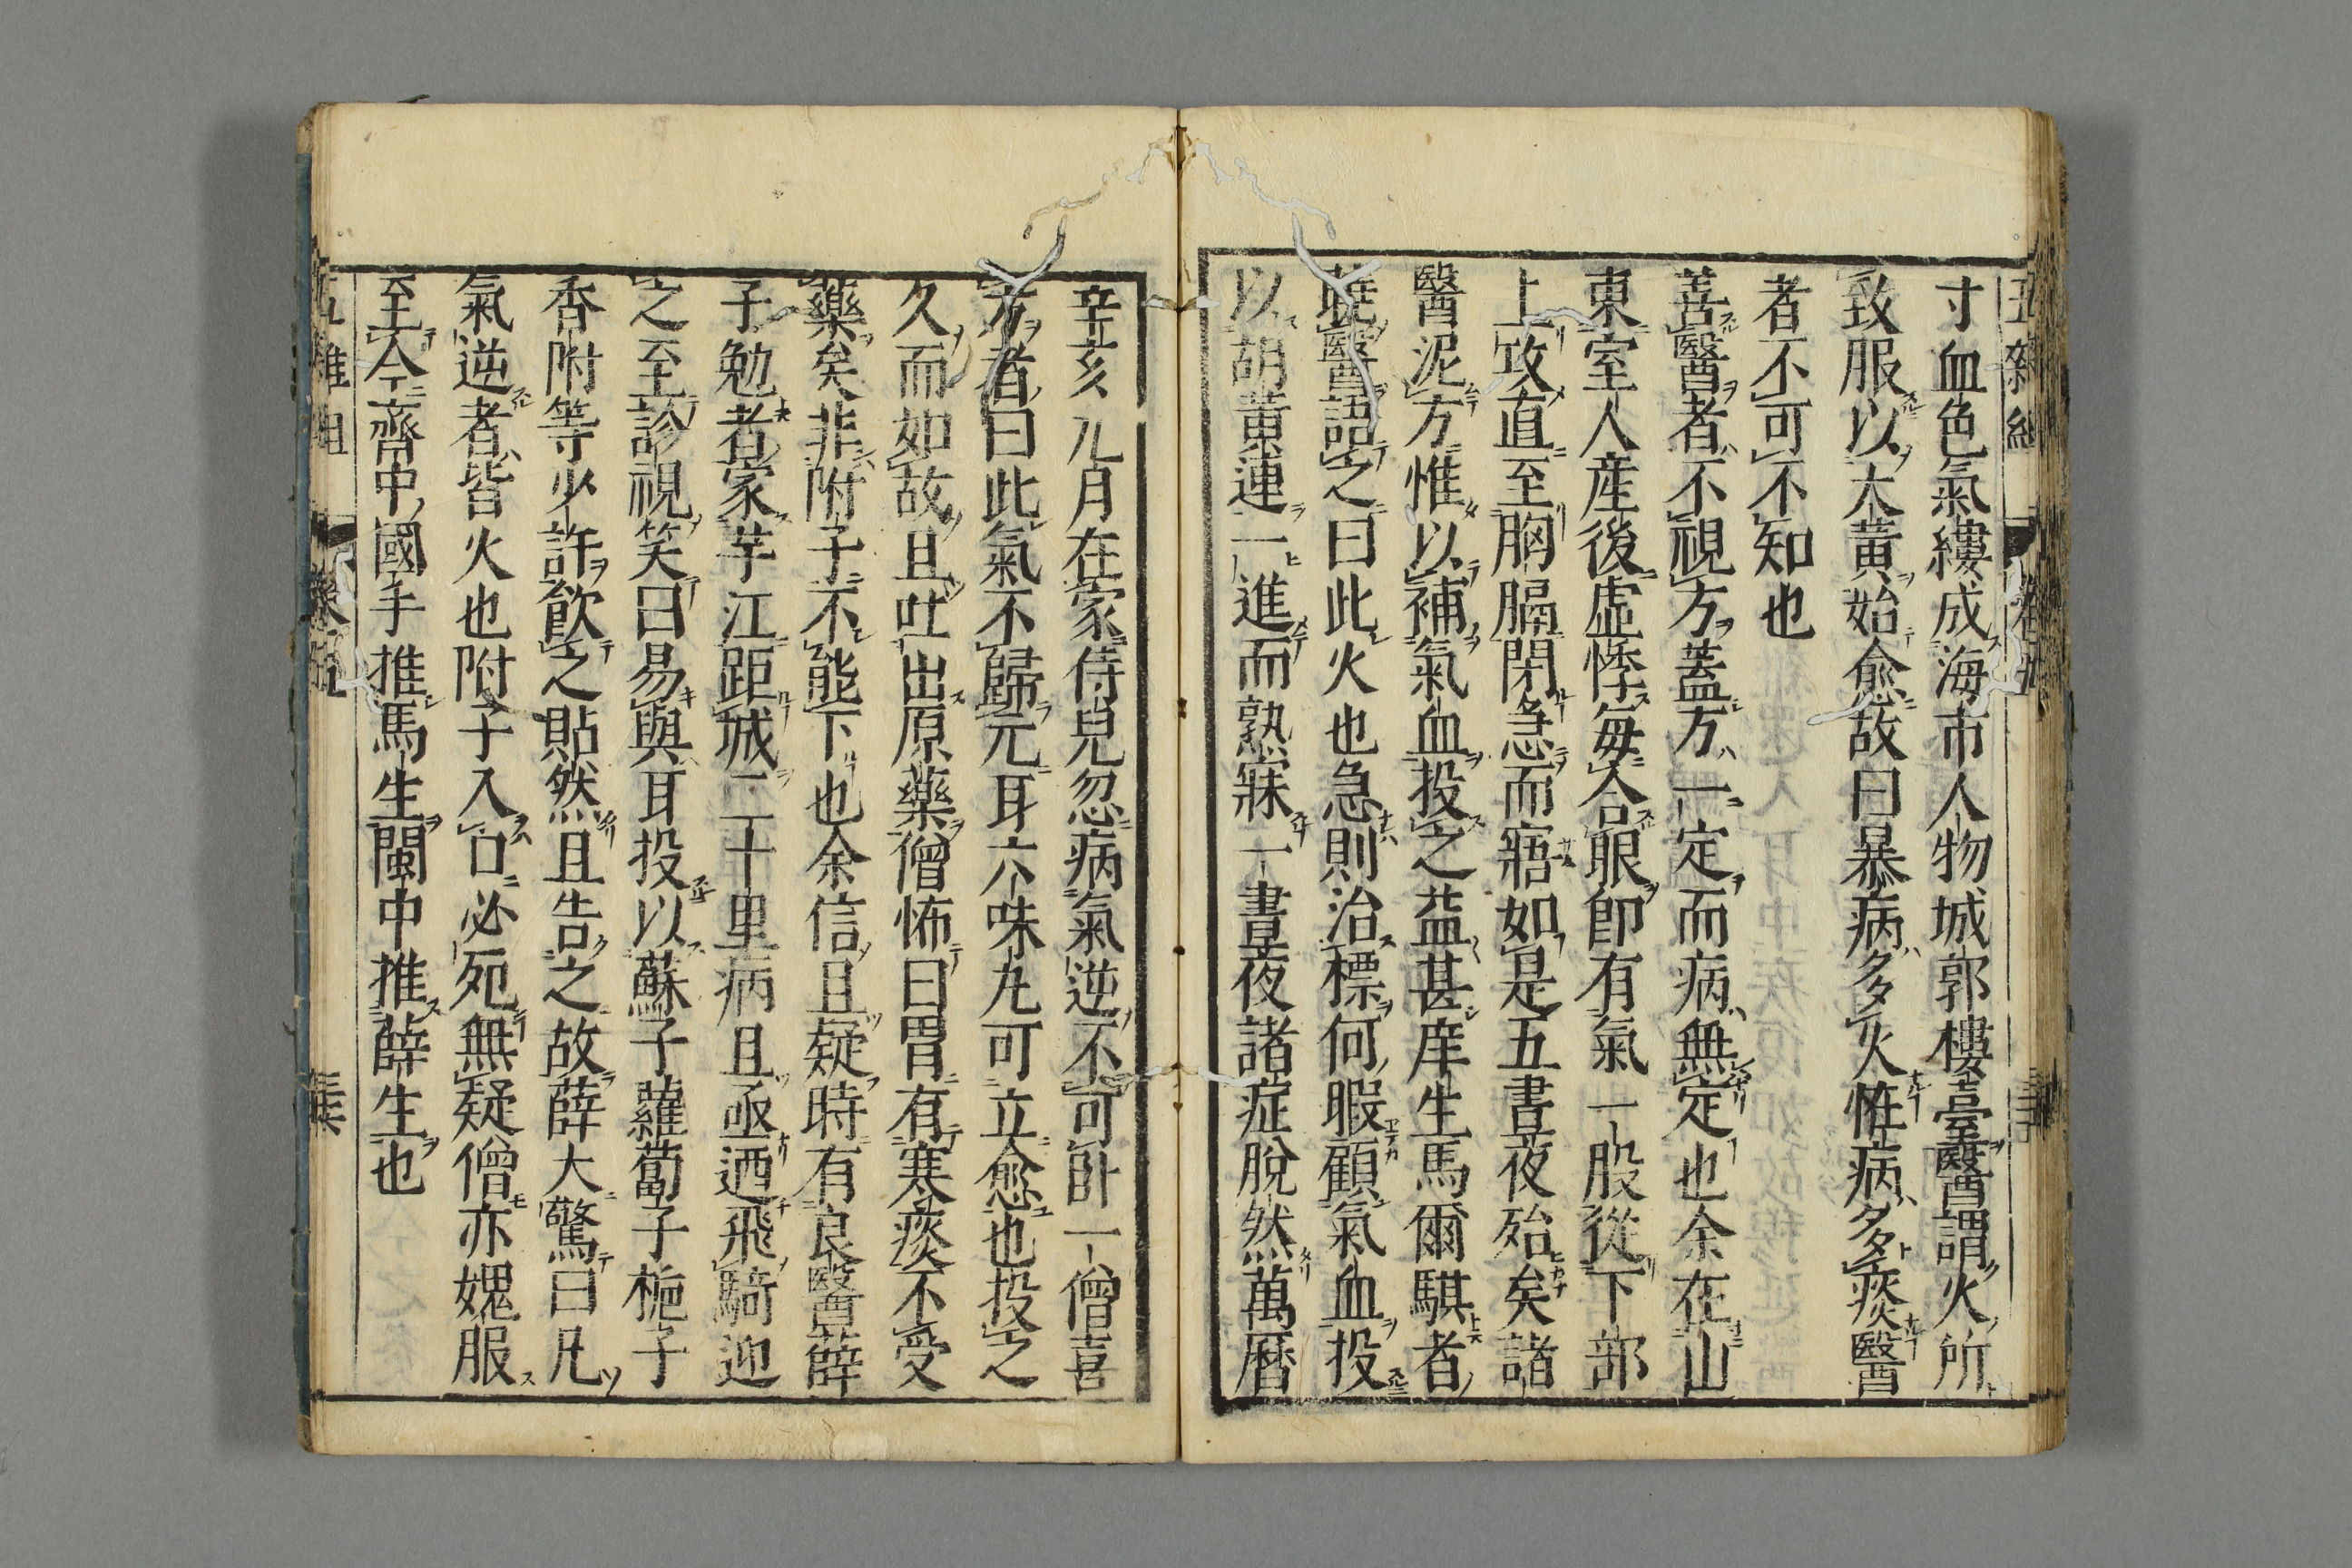 五雜組 卷五
寸血色氣縷成海市人物城郭樓臺醫謂火所
致服以大黃始愈故曰暴病多火恠病多痰醫
者不可不知也
善醫者不視方蓋方一定而病無定也余在山
東室人産後虛悸每合眼卽有氣一股從下部
上攻直至胸膈閉急而寤如是五晝夜殆矣諸
醫泥方惟以補氣血投之益甚庠生馬爾騏者
曉醫語之曰此火也急則治標何暇顧氣血投
以胡黃連一進而熟寐一晝夜諸症脫然萬曆
辛亥九月在家侍兒忽病氣逆不可卧一僧喜
方者曰此氣不歸元耳六味九可立愈也投之
久而如故且吐出原藥僧怖曰胃有寒痰不受
藥矣非附子不能下也余信且疑時有良醫薛
子勉者家芋江距城二十里病且亟迺飛騎迎
之至診視笑曰易與耳投以蘇子蘿蔔子梔子
香附等少許飲之貼然且告之故薛大驚曰凡
氣逆者皆火也附子入口必死無疑僧亦媿服
至今齊中國手推馬生閩中推薛生也
五雜組